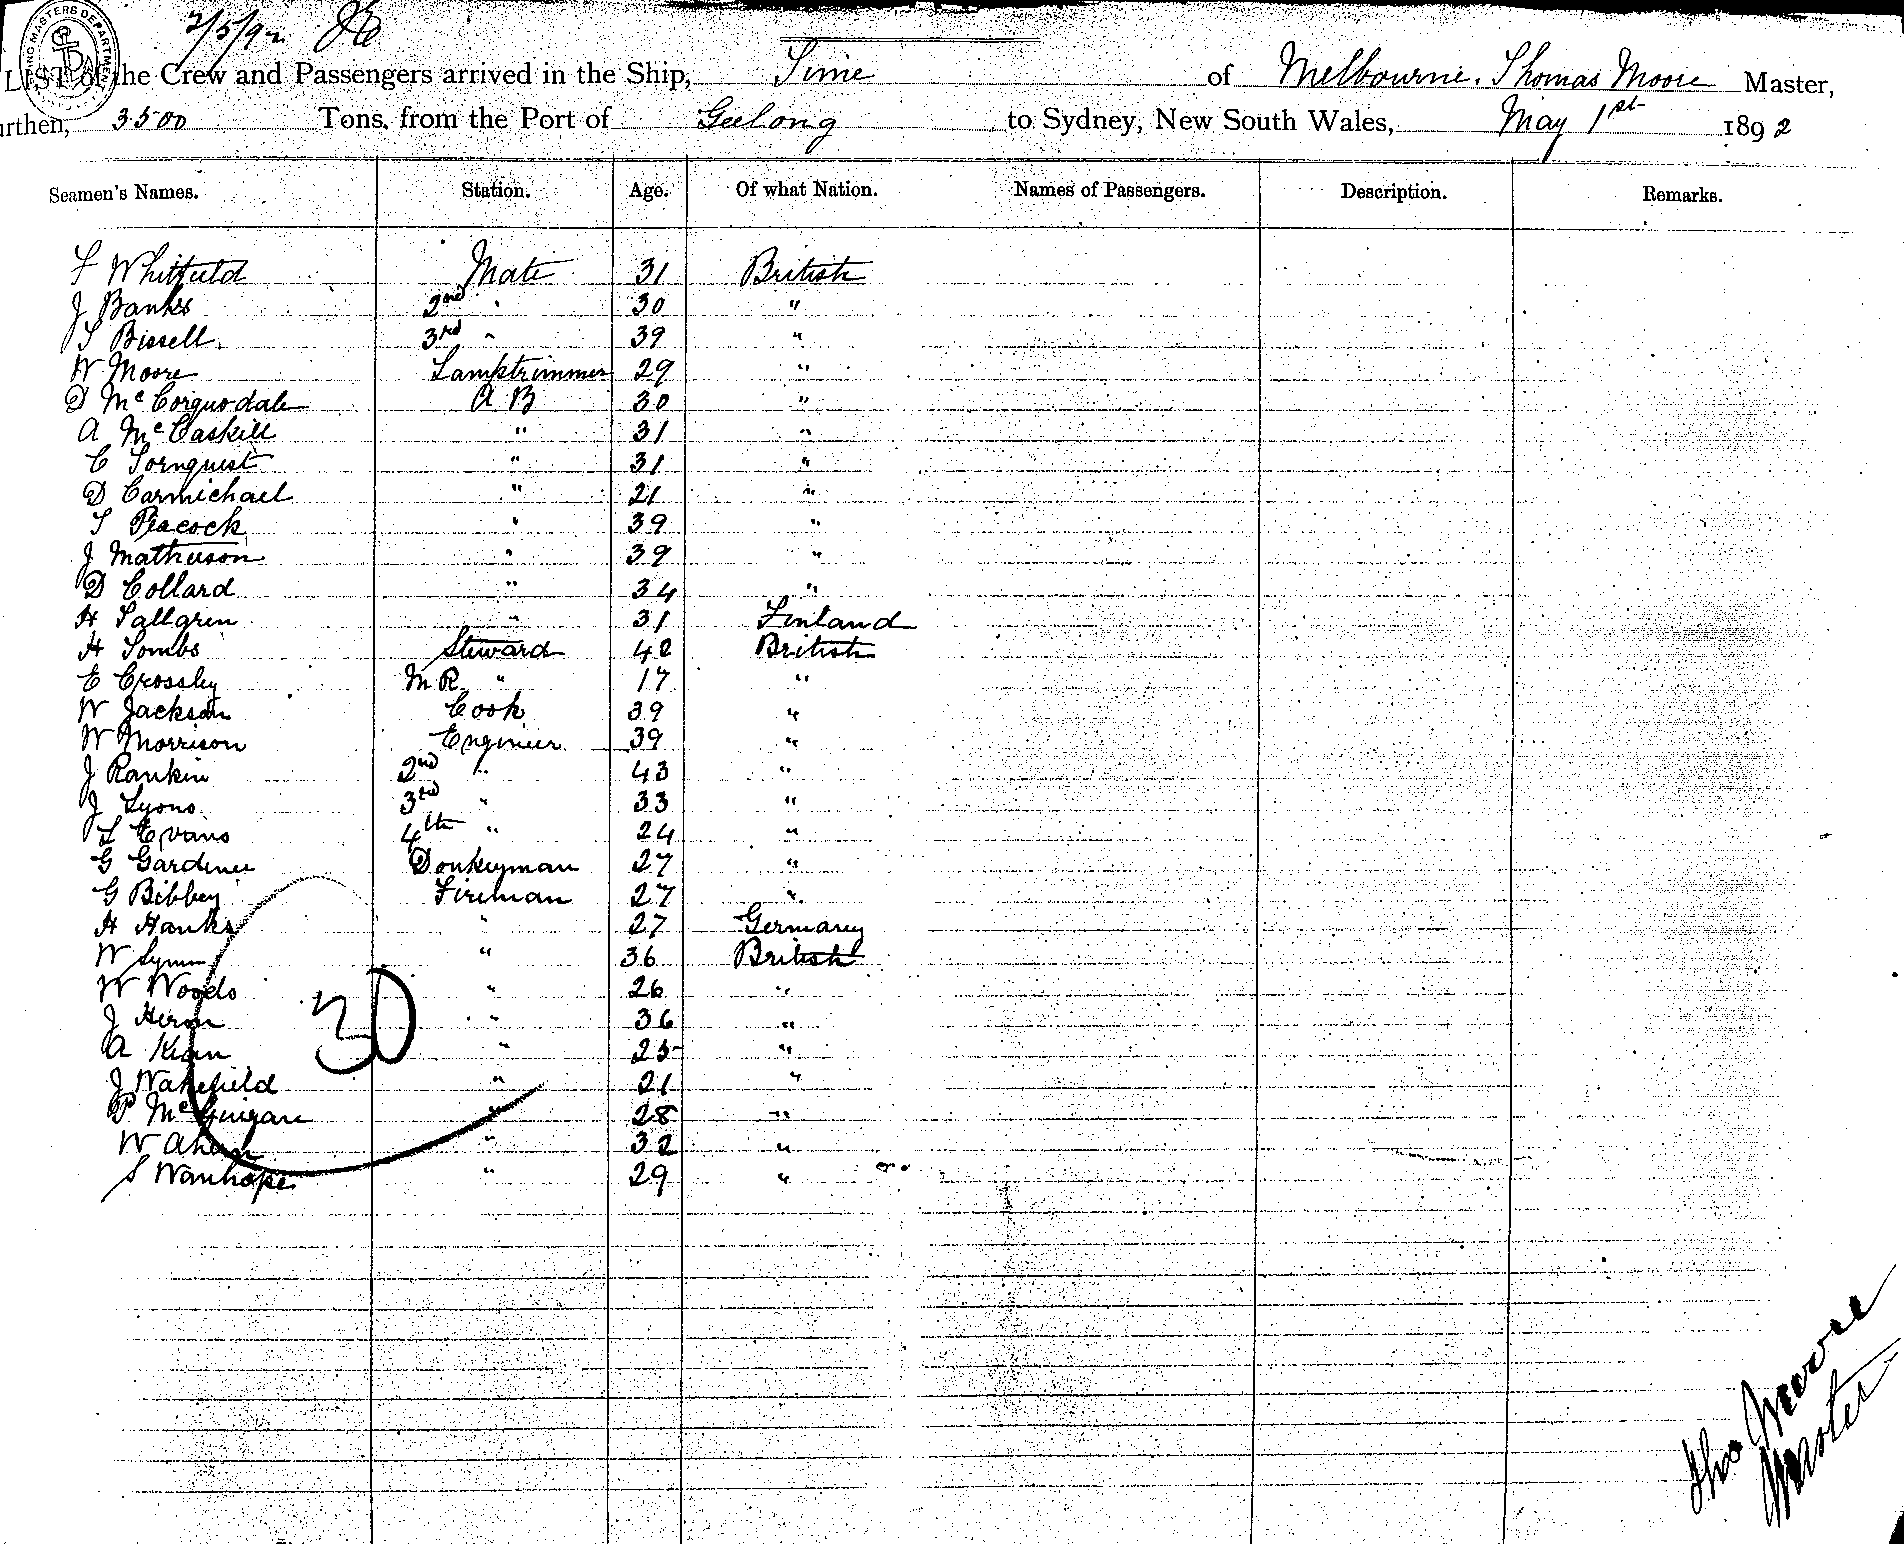 SHIPPING MASTERS DEPARTMENT
2/5/92
LIST of the Crew and Passengers arrived in the Ship, Time of Melbourne. Thomas Moore Master,
urthen, 3500 Tons. from the Port of Geelong to Sydney, New South Wales, May 1st 1892
Seamen's Names. Station. Age. Of what Nation. Names of Passengers. Description. Remarks.
F Whitfield Mate 31 British
J Banks 2nd " 30 "
T Bissell. 3rd " 39 "
W Moore Lamptrimmer 29 "
D McCorquodale A B 30 "
A McCaskill " 31 "
C Tornquist " 31 "
D Carmichael " 21 "
T Peacock " 39 "
J Matheson " 39 "
D Collard " 34 "
H Sallgren " 31 Finland
H Tombs Steward 42 British
E Crossley M R " 17 "
W Jackson Cook 39 "
W Morrison Engineer 39 "
J Rankin 2nd " 43 "
J Lyons 3rd " 33 "
L Evans 4th " 24 "
G Gardiner Donkeyman 27 "
G Bibbey Fireman 27 "
H Hanks " 27 Germany
W Symm " 36 British
W Woods " 26 "
J Heron " 36 "
A Kean " 25 "
J Wakefield " 21 "
P McGuigan " 28 "
W Ahern " 32 "
S Wanhope " 29 "
30
Thos Moore
Master